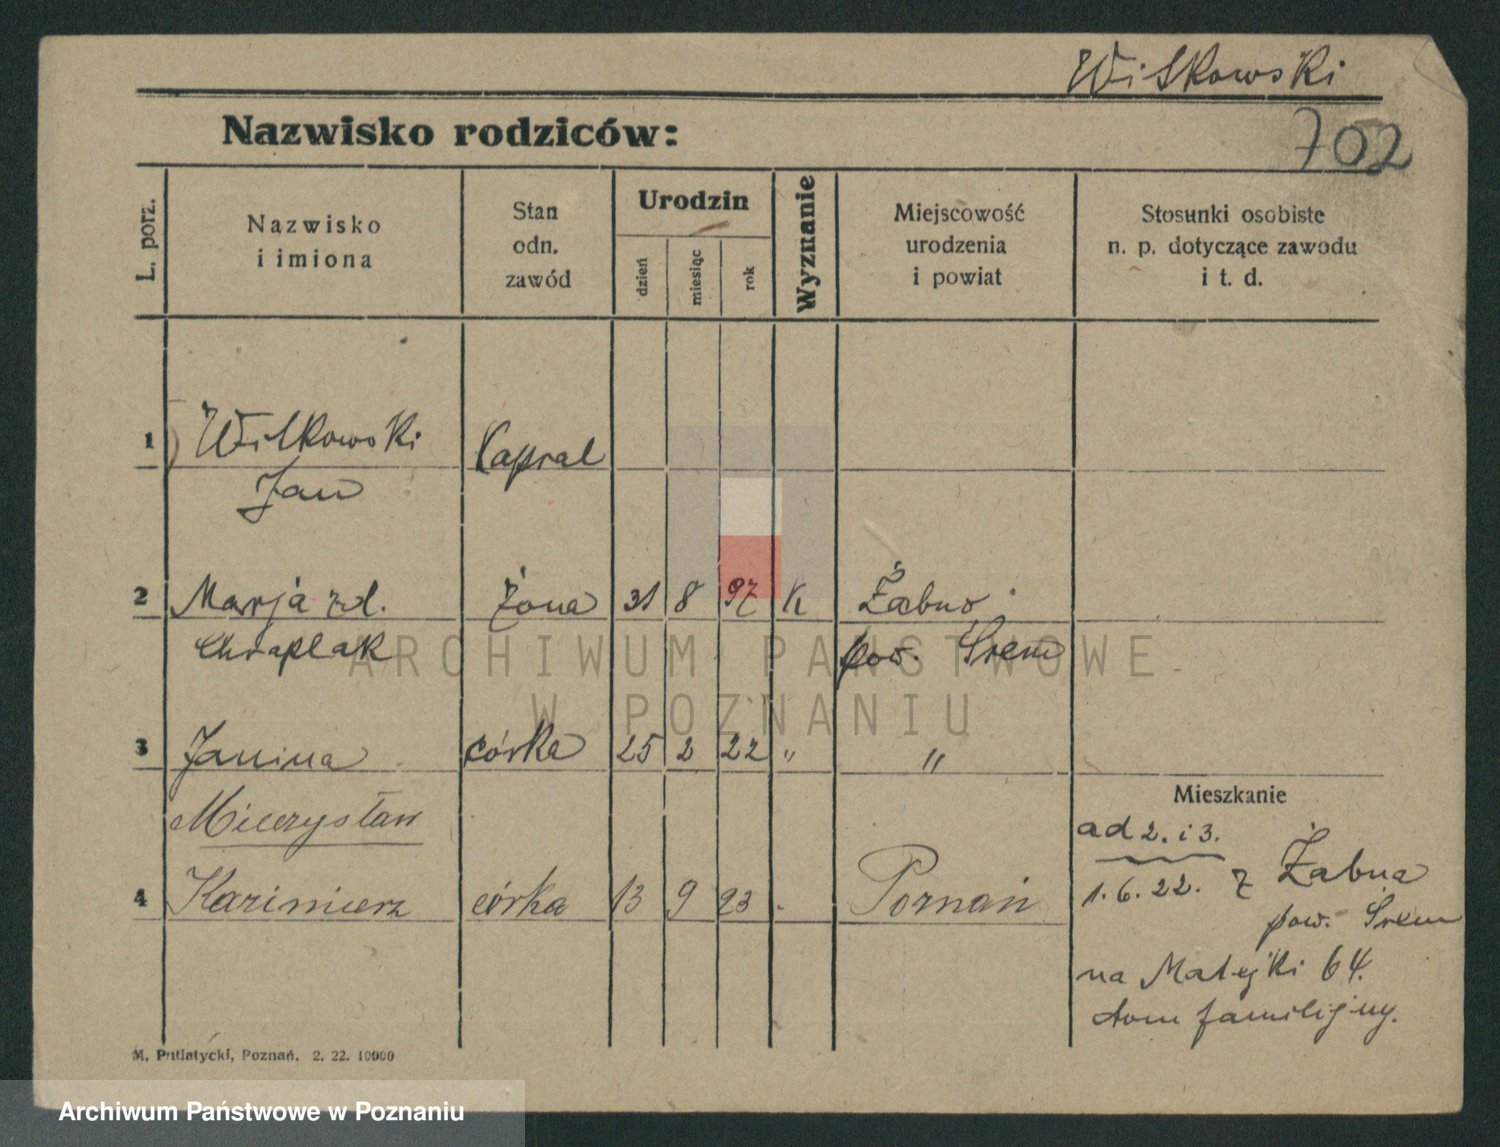 Wilkowski
Nazwisko rodziców:
702
L. porz.
Nazwisko
i imiona
Stan
odn.
zawód
Urodzin
dzień
miesiąc
rok
Wyznanie
Miejscowość
urodzenia
i powiat
Stosunki osobiste
n. p. dotyczące zawodu
i t. d.
1 Wilkowski Kapral
Jan
2 Marja zd. żona 31 8 97 K Żabno
Chraplak pow. Śrem
3 Janina córka 25 2 22 " "
Mieszkanie
Mieczysław
ad 2. i 3.
4 Kazimierz córka 13 9 23 . Poznań
1.6.22. z Żabna
pow. Śrem
na Matejki 64.
dom familijny.
M. Putiatycki, Poznań. 2. 22. 10000
ARCHIWUM PAŃSTWOWE
W POZNANIU
Archiwum Państwowe w Poznaniu